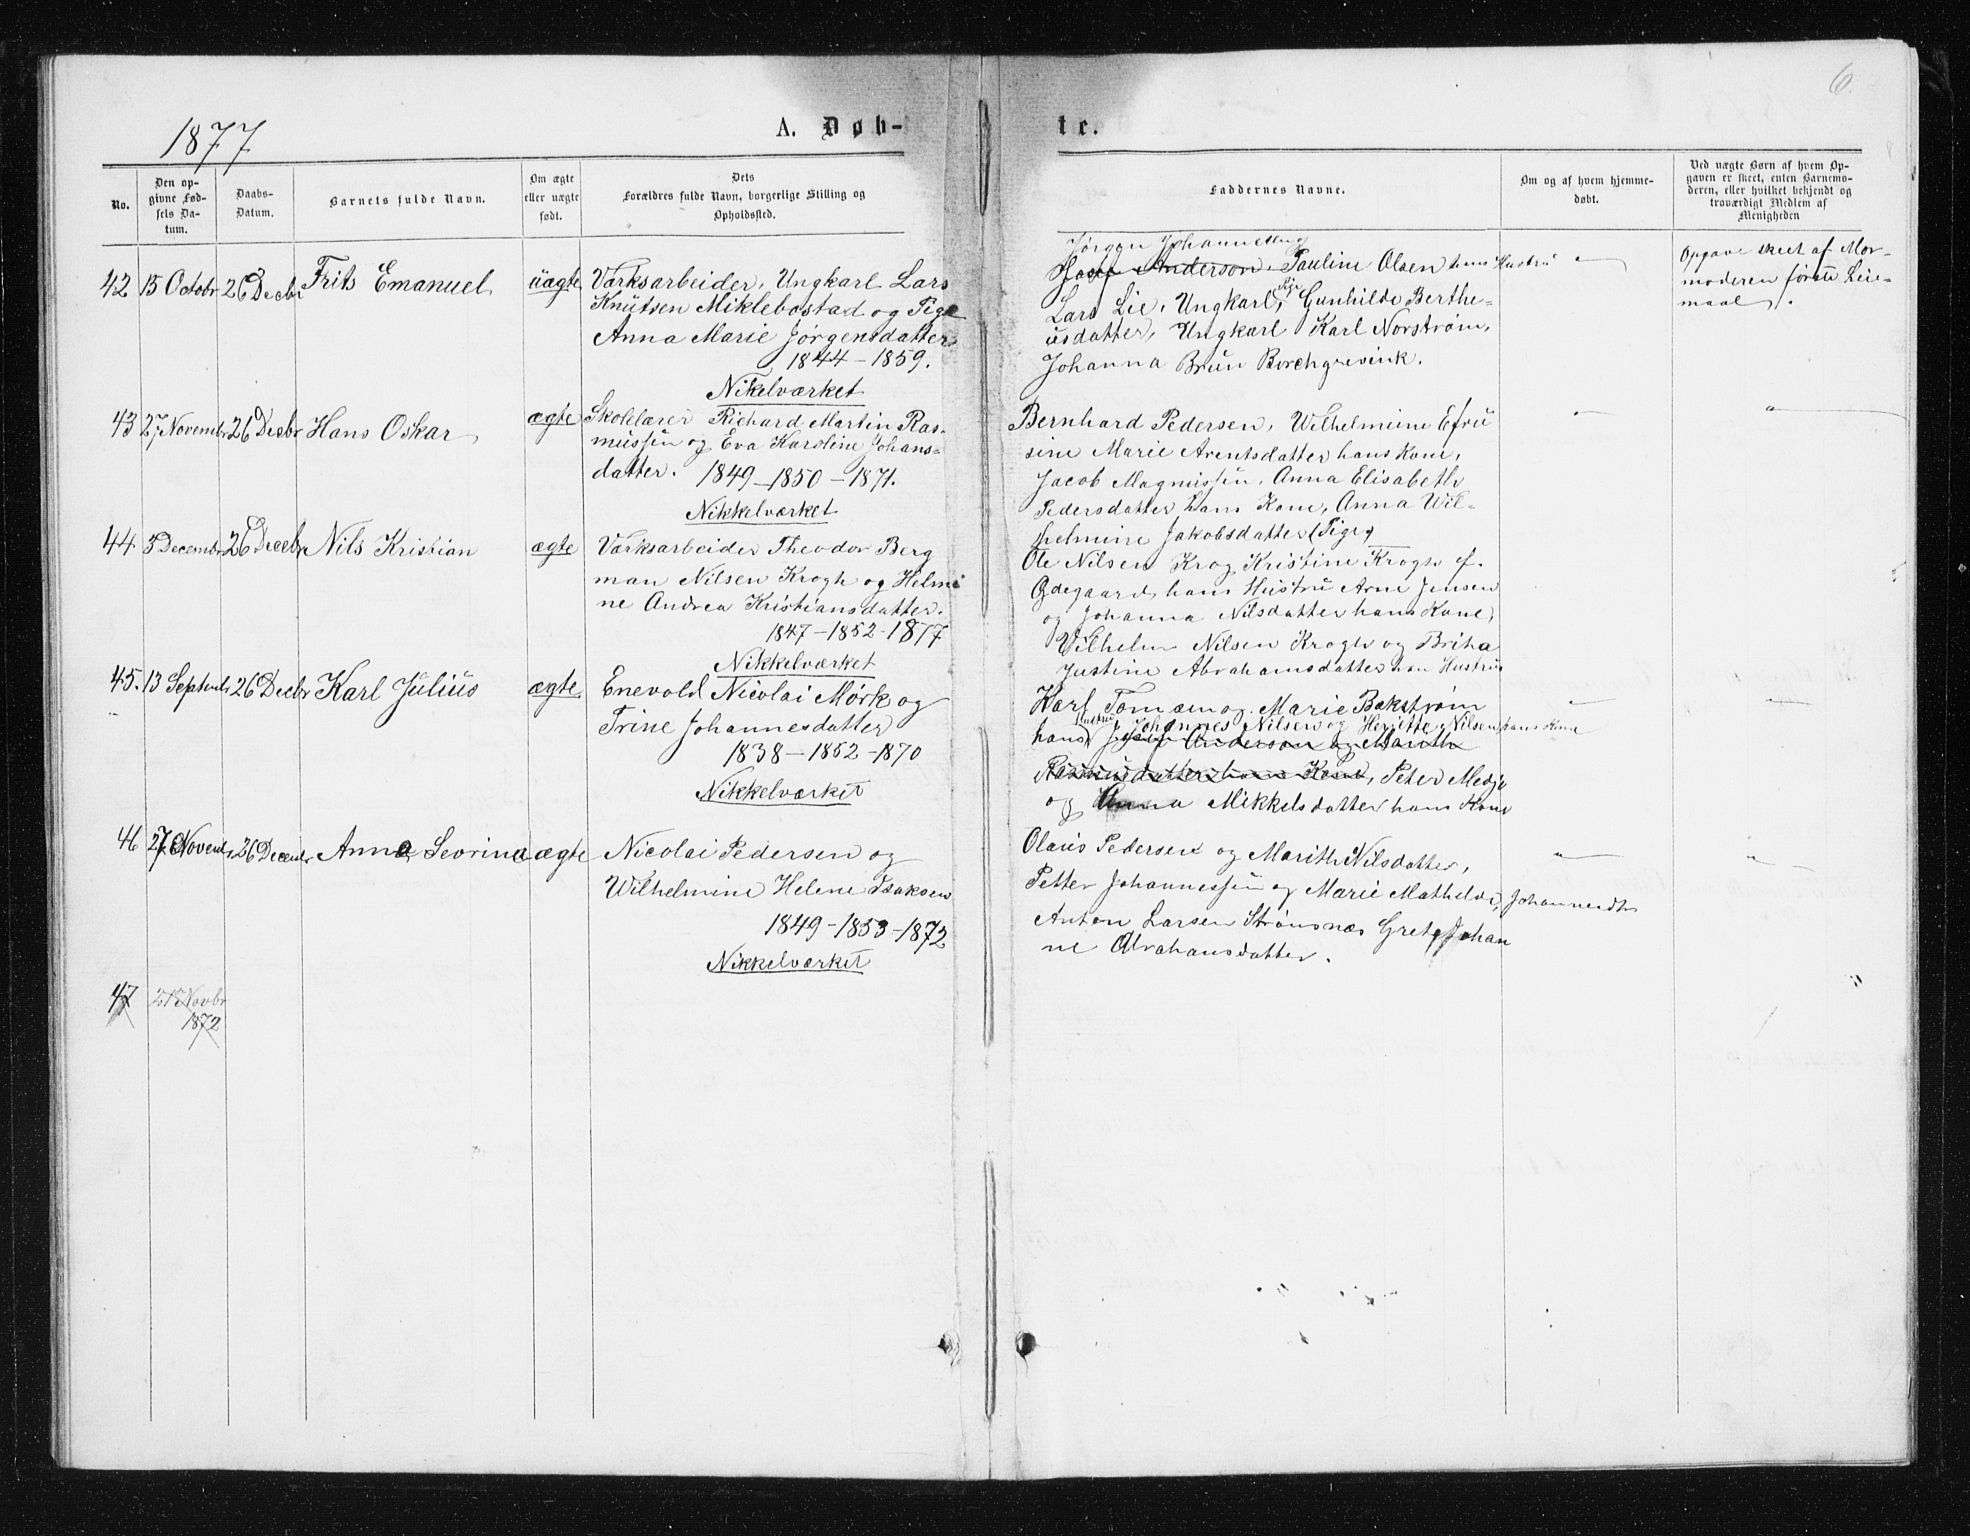 6.
1877
A. Døb-
te.
No.
Den op-
givne Fød-
sels Da-
tum.
Daabs-
Datum.
Barnets fulde Navn.
Om ægte
eller uægte
født.
Dets
Forældres fulde Navn, borgerlige Stilling og
Opholdssted.
Faddernes Navne.
Om og af hvem hjemme-
døbt.
Ved uægte Børn af hvem Op-
gaven er skeet, enten Barnemo-
deren, eller hvilket bekjendt og
troværdigt Medlem af
Menigheden
42 15 Octobr 26 Decbr Frits Emanuel uægte
Værksarbeider, Ungkarl Lars
Knutsen Miklebostad og Pige
Anna Marie Jørgensdatter
1844 - 1859.
Nikelværket
Jørgen
Anderson, Pauline Olsen hans Hustru
Lars Lie, Ungkarl, Pige Gunhilde Berthe-
usdatter, Ungkarl Karl Norstrøm,
Johanna Brun Borchgrevink.
"
Opgave skeet af Mor-
moderen første Lei-
maal.
43 27 Novembr 26 Decbr Hans Oskar ægte
Skolelærer Richard Martin Ras-
mussen og Eva Karoline Johans-
datter. 1849 - 1850 - 1871.
Nikkelværket
Bernhard Pedersen, Wilhelmine Efru
sine Marie Arentsdatter hans Kone,
Jacob Magnussen, Anna Elisabeth
Pedersdatter hans Kone, Anna Wil-
helmine Jakobsdatter (Pige)
"
"
44 5 Decembr 26 Decbr Nils Kristian ægte
Værksarbeider Theodor Berg
man Nilsen Krogh og Helmi
ne Andrea Kristiansdatter.
1847 - 1852 - 1877
Nikkelværket
Ole Nilsen Krog Kristine Krogh f.
Ødegaard hans Hustru Arne Jensen
og Johanna Nilsdatter hans Kone,
Vilhelm Nilsen Krogh og Britha
Justine Abrahamsdatter han Hustru
45. 13 Septembr 26 Decbr Karl Julius ægte
Enevold Nicolai Mørk og
Trine Johannesdatter
1838 - 1852 - 1870
Nikkelværket
Karl og Marie Bakstrøm
hans Hustru Johannes Nilsen og Nilsen hans Kone
Anderson og
hans Kone, Peter Medjo
og Anna Mikkelsdatter hans Kone
"
"
46 27 Novembr 26 Decembr Anna Sevrina ægte
Nicolai Pedersen og
Wilhelmine Helene Isaksen
1849 - 1853 - 1872
Nikkelværket
Olaus Pedersen og Marith Nilsdatter,
Petter Johannessen og Marie Mathilde, Johannesdtr
Anton Larsen Strømsnæs Grete Johan
ne Abrahamsdatter.
"
"
47 Novbr
1872